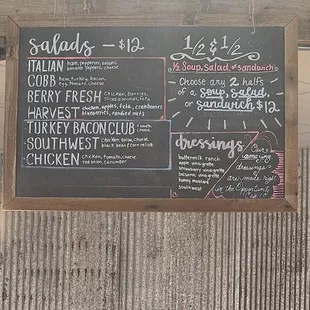 Salads - $12
ITALIAN ham, pepperoni, salami, banana peppers, cheese
COBB Ham, turkey, bacon, egg, tomato, cheese
BERRY FRESH Chicken, Berries, Sliced almonds, feta
HARVEST Chicken, apples, feta, cranberries, blueberries, candied nuts
TURKEY BACON CLUB tomato, cheese
SOUTHWEST Chicken, salsa, cheese, black bean/corn relish
CHICKEN Chicken, tomato, cheese, red onion, cucumber
1/2 & 1/2
1/2 Soup, Salad, or Sandwich
Choose any 2 halfs
of a soup, salad,
or sandwich $12
dressings
buttermilk ranch
apple vinaigrette
strawberry vinaigrette
balsamic vinaigrette
honey mustard
southwest
Our
amazing
dressings
are made right
in the